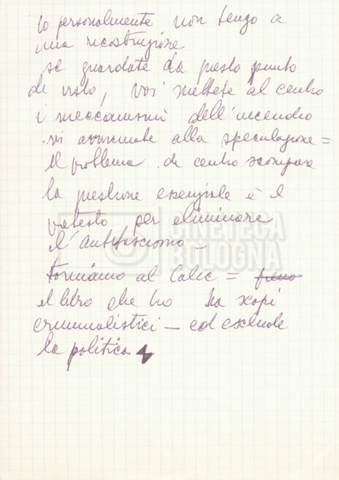 Io personalmente non tengo a
una ricostruzione
se guardate da questo punto
di vista, voi mettete al centro
i meccanismi dell'incendio
vi avvicinate alla speculazione =
Il problema di centro scompare
la questione essenziale è il
pretesto per eliminare
l'antifascismo —
Torniamo al Calic =
il libro che ho ha scopi
criminalistici — ed esclude
la politica
CINETECA
BOLOGNA